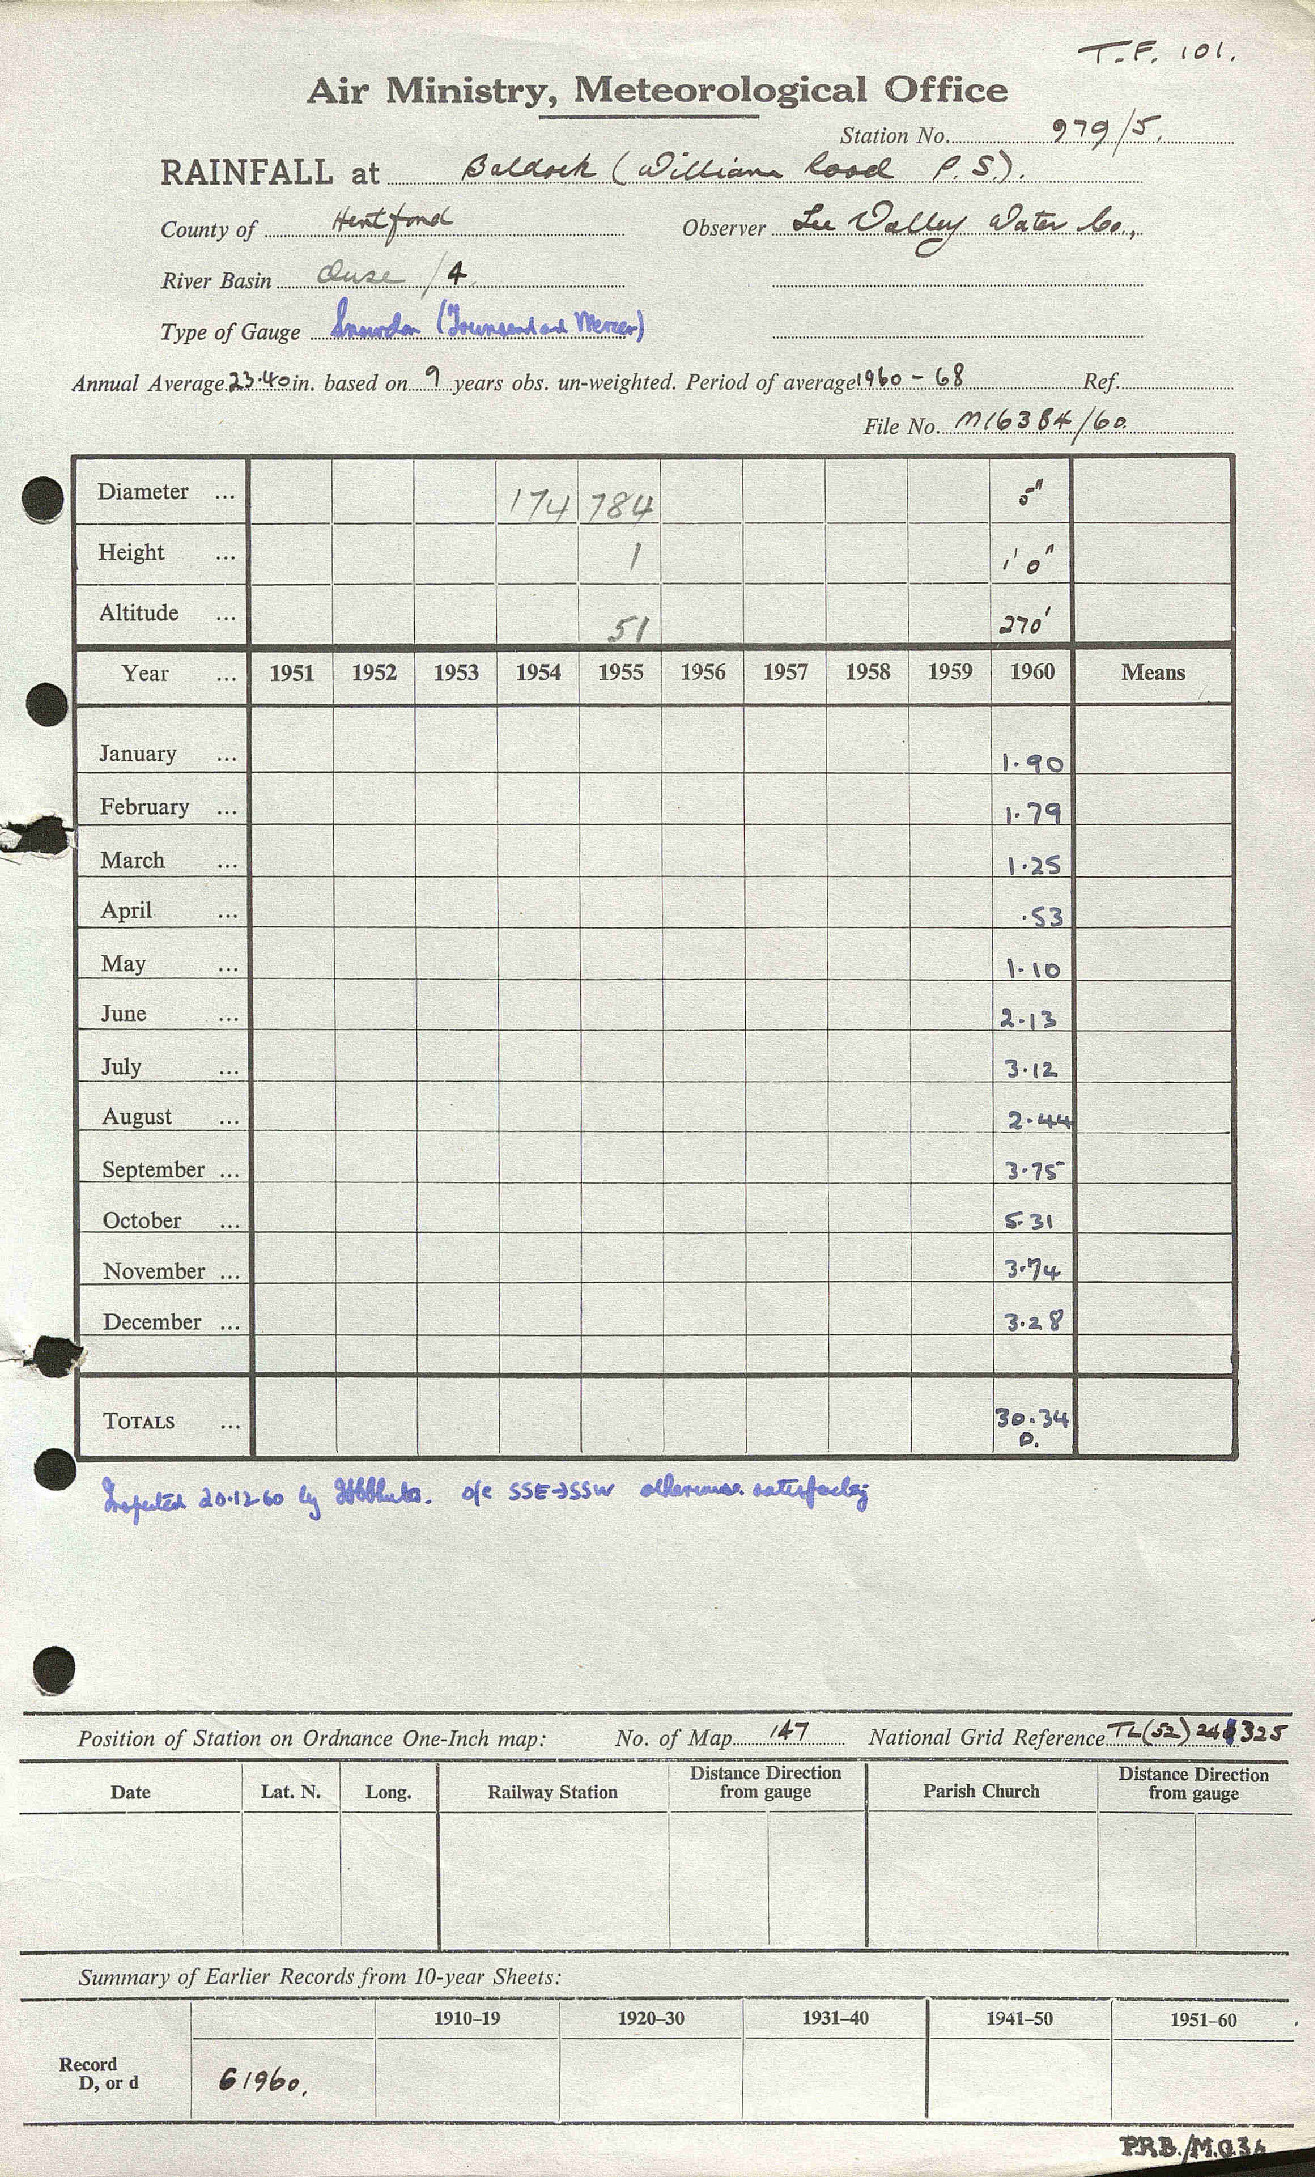 T.F. 101.
Air Ministry, Meteorological Office
Station No. 979/5.
RAINFALL at Baldock (Willian Road P.S.).
County of Hertford Observer Lee Valley Water Co.,
River Basin Ouse /4
Type of Gauge Snowdon (Townsend and Mercer)
Annual Average 23.40 in. based on 9 years obs. un-weighted. Period of average 1960 - 68 Ref.
File No. M16384/60
Diameter ... 174 784 5"
Height ... 1 1' 0"
Altitude ... 51 270'
Year ... 1951 1952 1953 1954 1955 1956 1957 1958 1959 1960 Means
January ... 1.90
February ... 1.79
March ... 1.25
April ... .53
May ... 1.10
June ... 2.13
July ... 3.12
August ... 2.44
September ... 3.75
October ... 5.31
November ... 3.74
December ... 3.28
TOTALS ... 30.34
D.
Inspected 20.12.60 by o/e SSE→SSW otherwise satisfactory
Position of Station on Ordnance One-Inch map: No. of Map 147 National Grid Reference TL(52) 24 325
Date Lat. N. Long. Railway Station Distance Direction from gauge Parish Church Distance Direction from gauge
Summary of Earlier Records from 10-year Sheets:
1910–19 1920–30 1931–40 1941–50 1951–60
Record
D, or d 61960.
P.R.B./M.O.3